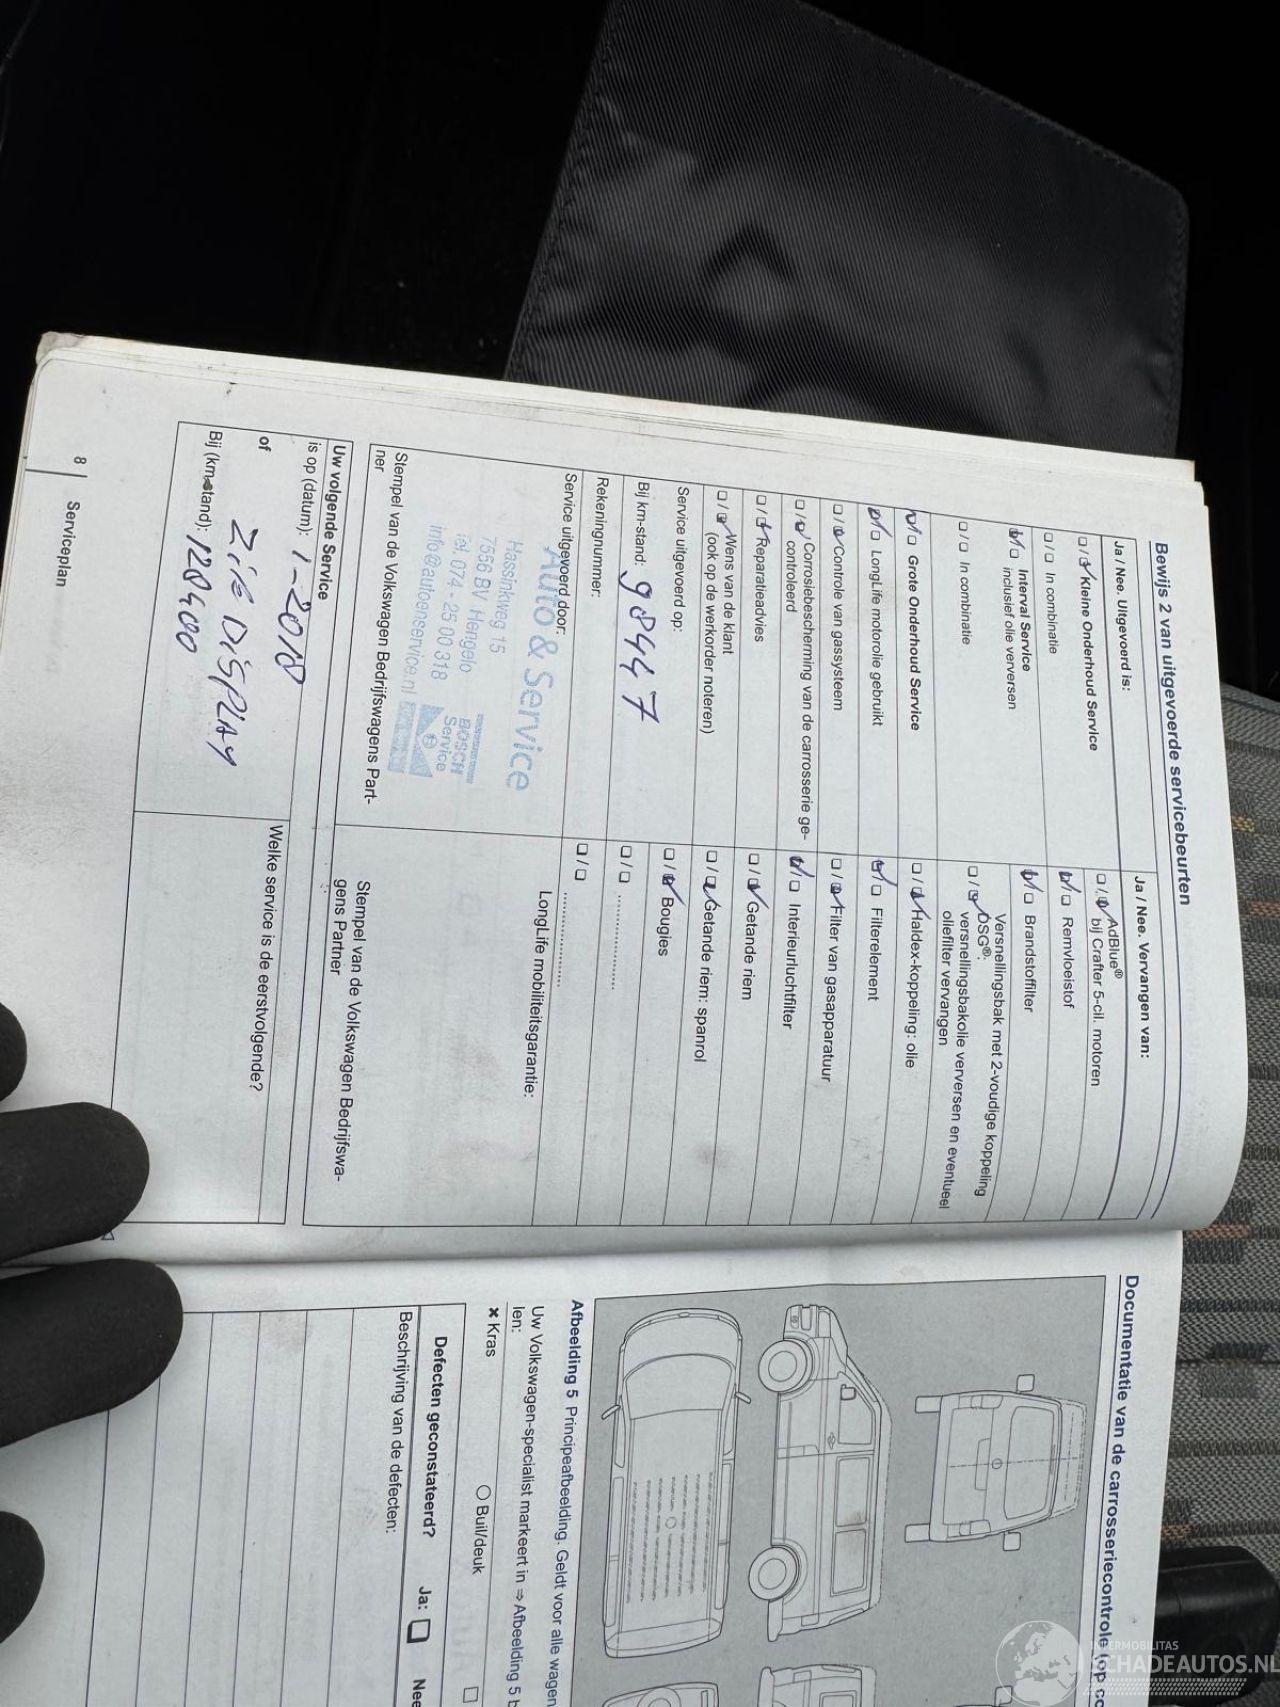 Bewijs 2 van uitgevoerde servicebeurten
Ja / Nee. Uitgevoerd is:
Kleine Onderhoud Service
In combinatie
Interval Service
inclusief olie verversen
In combinatie
Grote Onderhoud Service
LongLife motorolie gebruikt
Controle van gassysteem
Corrosiebescherming van de carrosserie ge-
controleerd
Reparatieadvies
Wens van de klant
(ook op de werkorder noteren)
Service uitgevoerd op:
Bij km-stand: 98447
Rekeningnummer:
Service uitgevoerd door:
Auto & Service
Hassinkweg 15
7556 BV Hengelo
Tel. 074 - 25 00 318
info@autoenservice.nl
BOSCH
Service
Stempel van de Volkswagen Bedrijfswagens Part-
ner
Ja / Nee. Vervangen van:
AdBlue®
bij Crafter 5-cil. motoren
Remvloeistof
Brandstoffilter
Versnellingsbak met 2-voudige koppeling
DSG®:
versnellingsbakolie verversen en eventueel
oliefilter vervangen
Haldex-koppeling: olie
Filterelement
Filter van gasapparatuur
Interieurluchtfilter
Getande riem
Getande riem: spanrol
Bougies
LongLife mobiliteitsgarantie:
Stempel van de Volkswagen Bedrijfswa-
gens Partner
Uw volgende Service
is op (datum): 1-2018
of
ZIE DISPLAY
Bij (km-stand): 128400
Welke service is de eerstvolgende?
8 Serviceplan
Documentatie van de carrosseriecontrole op
Afbeelding 5 Principeafbeelding. Geldt voor alle wagen
Uw Volkswagen-specialist markeert in ⇒ Afbeelding 5
len:
× Kras
○ Buil/deuk
Defecten geconstateerd?
Ja: ☐
Nee
Beschrijving van de defecten:
INTERMOBILITAS
SCHADEAUTOS.NL